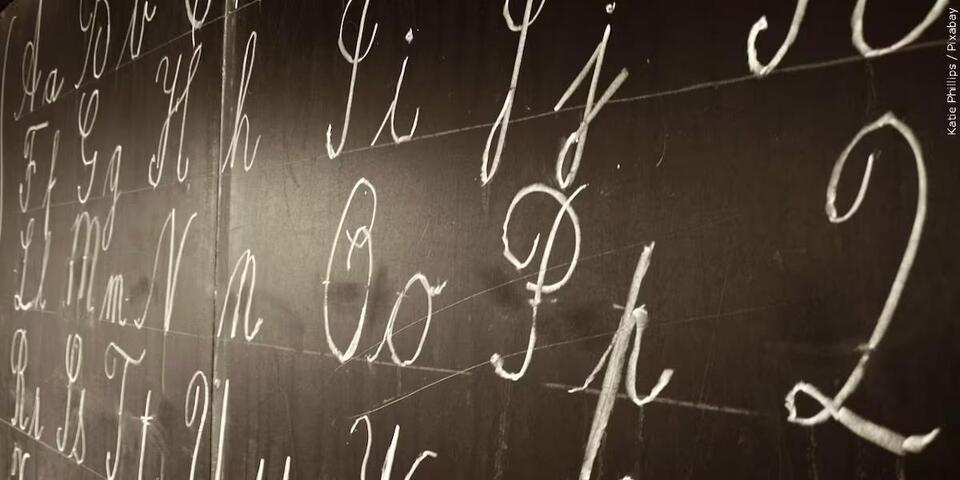 A a B
F f G g H h I i J j
L l M m N n O o P p Q
R r S s T t U u
Katie Phillips / Pixabay